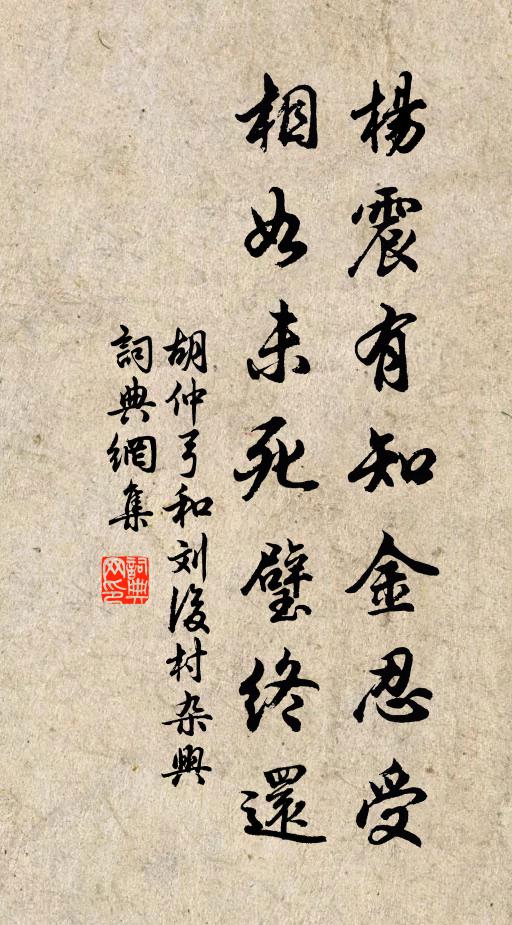 楊震有知金忍受
相如未死璧終還
胡仲弓和刘後村杂興
詞典網集
詞典網印